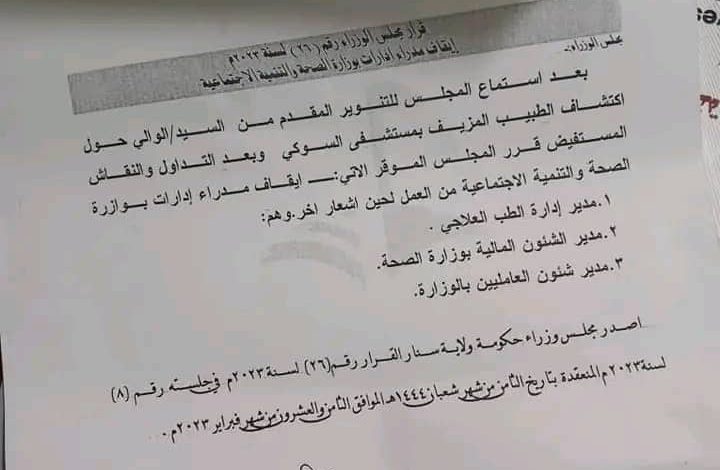 قرار مجلس الوزراء رقم (٢٦) لسنة ٢٠٢٣م
إيقاف مدراء ادارات بوزارة الصحة والتنمية الاجتماعية
مجلس الوزراء:-
بعد استماع المجلس للتنوير المقدم من السيد/الوالي حول
اكتشاف الطبيب المزيف بمستشفى السوكي وبعد التداول والنقاش
المستفيض قرر المجلس الموقر الاتي:ــ ايقاف مدراء إدارات بوازرة
الصحة والتنمية الاجتماعية من العمل لحين اشعار اخر.وهم:
١.مدير إدارة الطب العلاجي .
٢.مدير الشئون المالية بوزارة الصحة.
٣.مدير شئون العامليين بالوزارة.
اصدر مجلس وزراء حكومة ولاية سنار القرار رقم(٢٦) لسنة ٢٠٢٣م في جلسته رقم (٨)
لسنة ٢٠٢٣م المنعقدة بتاريخ الثامن من شهر شعبان ١٤٤٤هـ الموافق الثامن والعشرون من شهر فبراير ٢٠٢٣م...